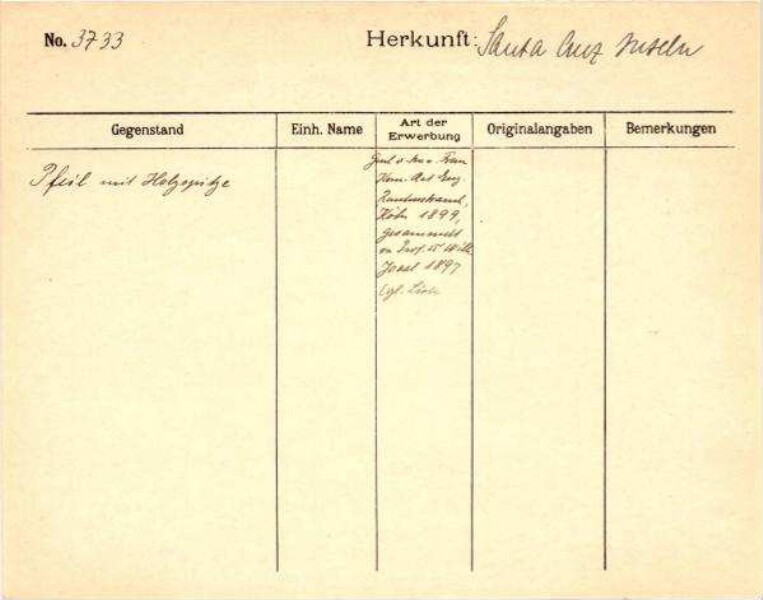 No. 3733
Herkunft: Santa Cruz Inseln
Gegenstand
Einh. Name
Art der Erwerbung
Originalangaben
Bemerkungen
Pfeil mit Holzspitze
Frau
Rautenstrauch,
Köln 1899,
gesammelt
Prof. Dr. Wilh.
Joest 1897
vgl. Liste